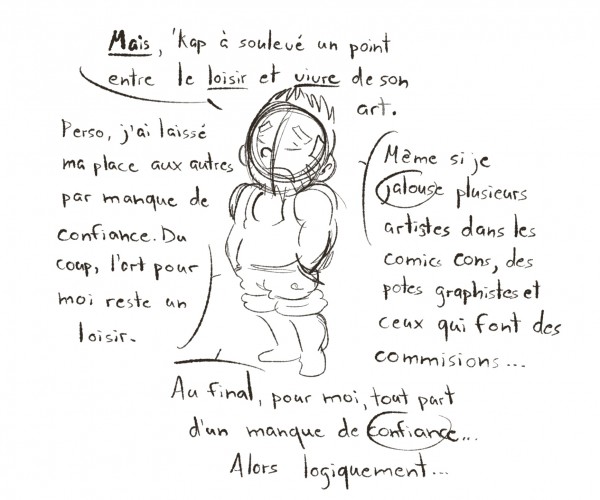 Mais, 'Kap à soulevé un point
entre le loisir et vivre de son
art.
Perso, j'ai laissé
ma place aux autres
par manque de
confiance. Du
coup, l'art pour
moi reste un
loisir.
Même si je
jalouse plusieurs
artistes dans les
comics cons, des
potes graphistes et
ceux qui font des
commisions...
Au final, pour moi, tout part
d'un manque de confiance...
Alors logiquement...